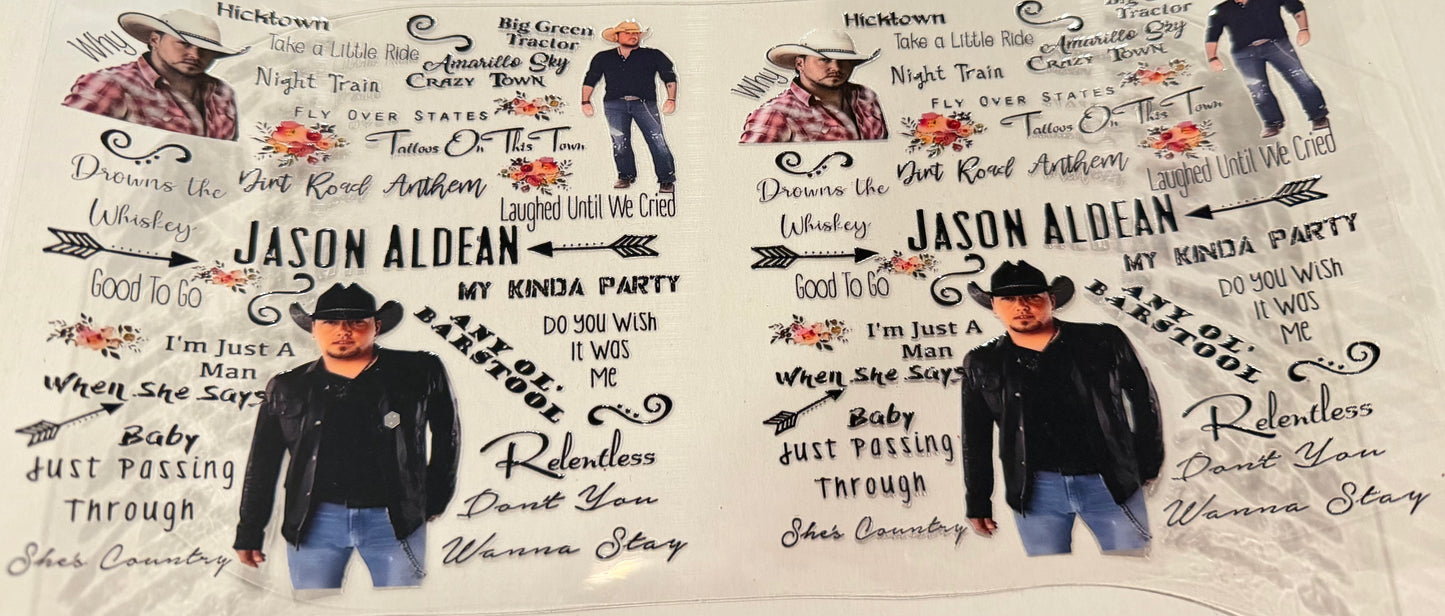 Hicktown
Why
Take a Little Ride
Big Green
Tractor
Amarillo Sky
Night Train
Crazy Town
Fly Over States
Tattoos On This Town
Drowns the
Whiskey
Dirt Road Anthem
Laughed Until We Cried
Jason Aldean
Good To Go
My Kinda Party
Any Ol'
Barstool
Do You Wish
It Was
Me
I'm Just A
Man
When She Says
Baby
Relentless
Just Passing
Through
Don't You
Wanna Stay
She's Country
Hicktown
Why
Take a Little Ride
Tractor
Amarillo Sky
Night Train
Crazy Town
Fly Over States
Tattoos On This Town
Drowns the
Whiskey
Dirt Road Anthem
Laughed Until We Cried
Jason Aldean
Good To Go
My Kinda Party
Any Ol'
Barstool
Do You Wish
It Was
Me
I'm Just A
Man
When She Says
Baby
Relentless
Just Passing
Through
Don't You
Wanna Stay
She's Country